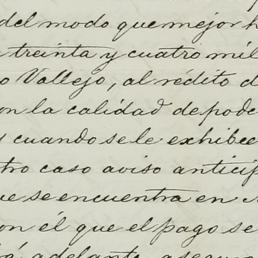 del modo que mejor h
treinta y cuatro mil
o Vallejo, al rédito d
on la calidad de pode
y cuando se le exhibee
tro caso aviso anticip
ue se encuentra en
on él que el pago se
rá adelante asegur